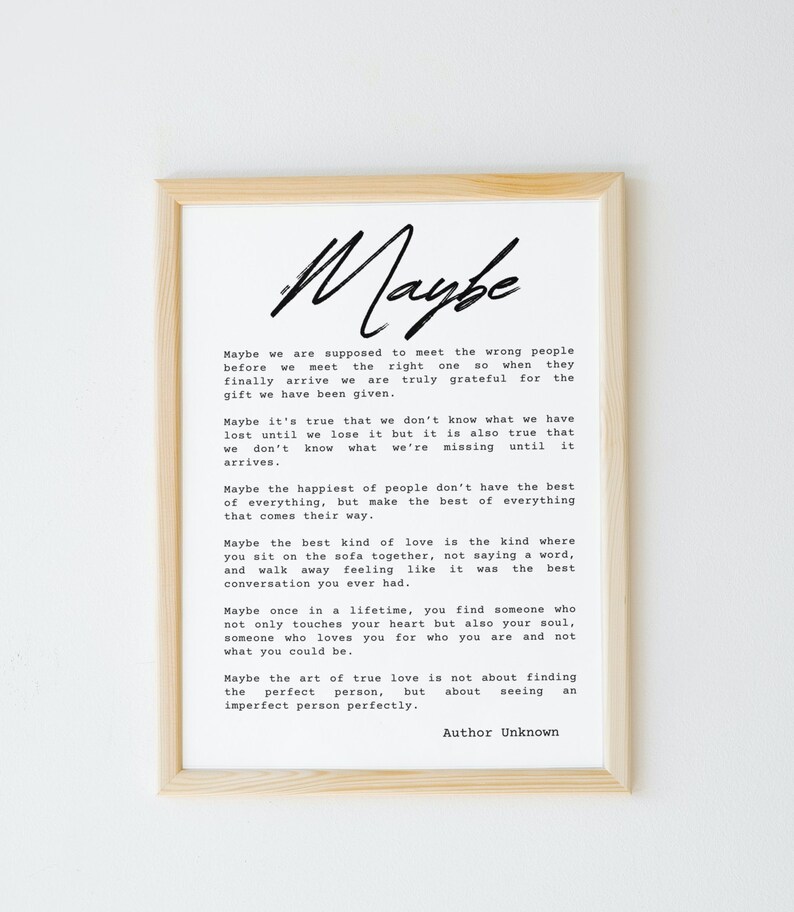 Maybe
Maybe we are supposed to meet the wrong people
before we meet the right one so when they
finally arrive we are truly grateful for the
gift we have been given.
Maybe it's true that we don’t know what we have
lost until we lose it but it is also true that
we don’t know what we’re missing until it
arrives.
Maybe the happiest of people don’t have the best
of everything, but make the best of everything
that comes their way.
Maybe the best kind of love is the kind where
you sit on the sofa together, not saying a word,
and walk away feeling like it was the best
conversation you ever had.
Maybe once in a lifetime, you find someone who
not only touches your heart but also your soul,
someone who loves you for who you are and not
what you could be.
Maybe the art of true love is not about finding
the perfect person, but about seeing an
imperfect person perfectly.
Author Unknown